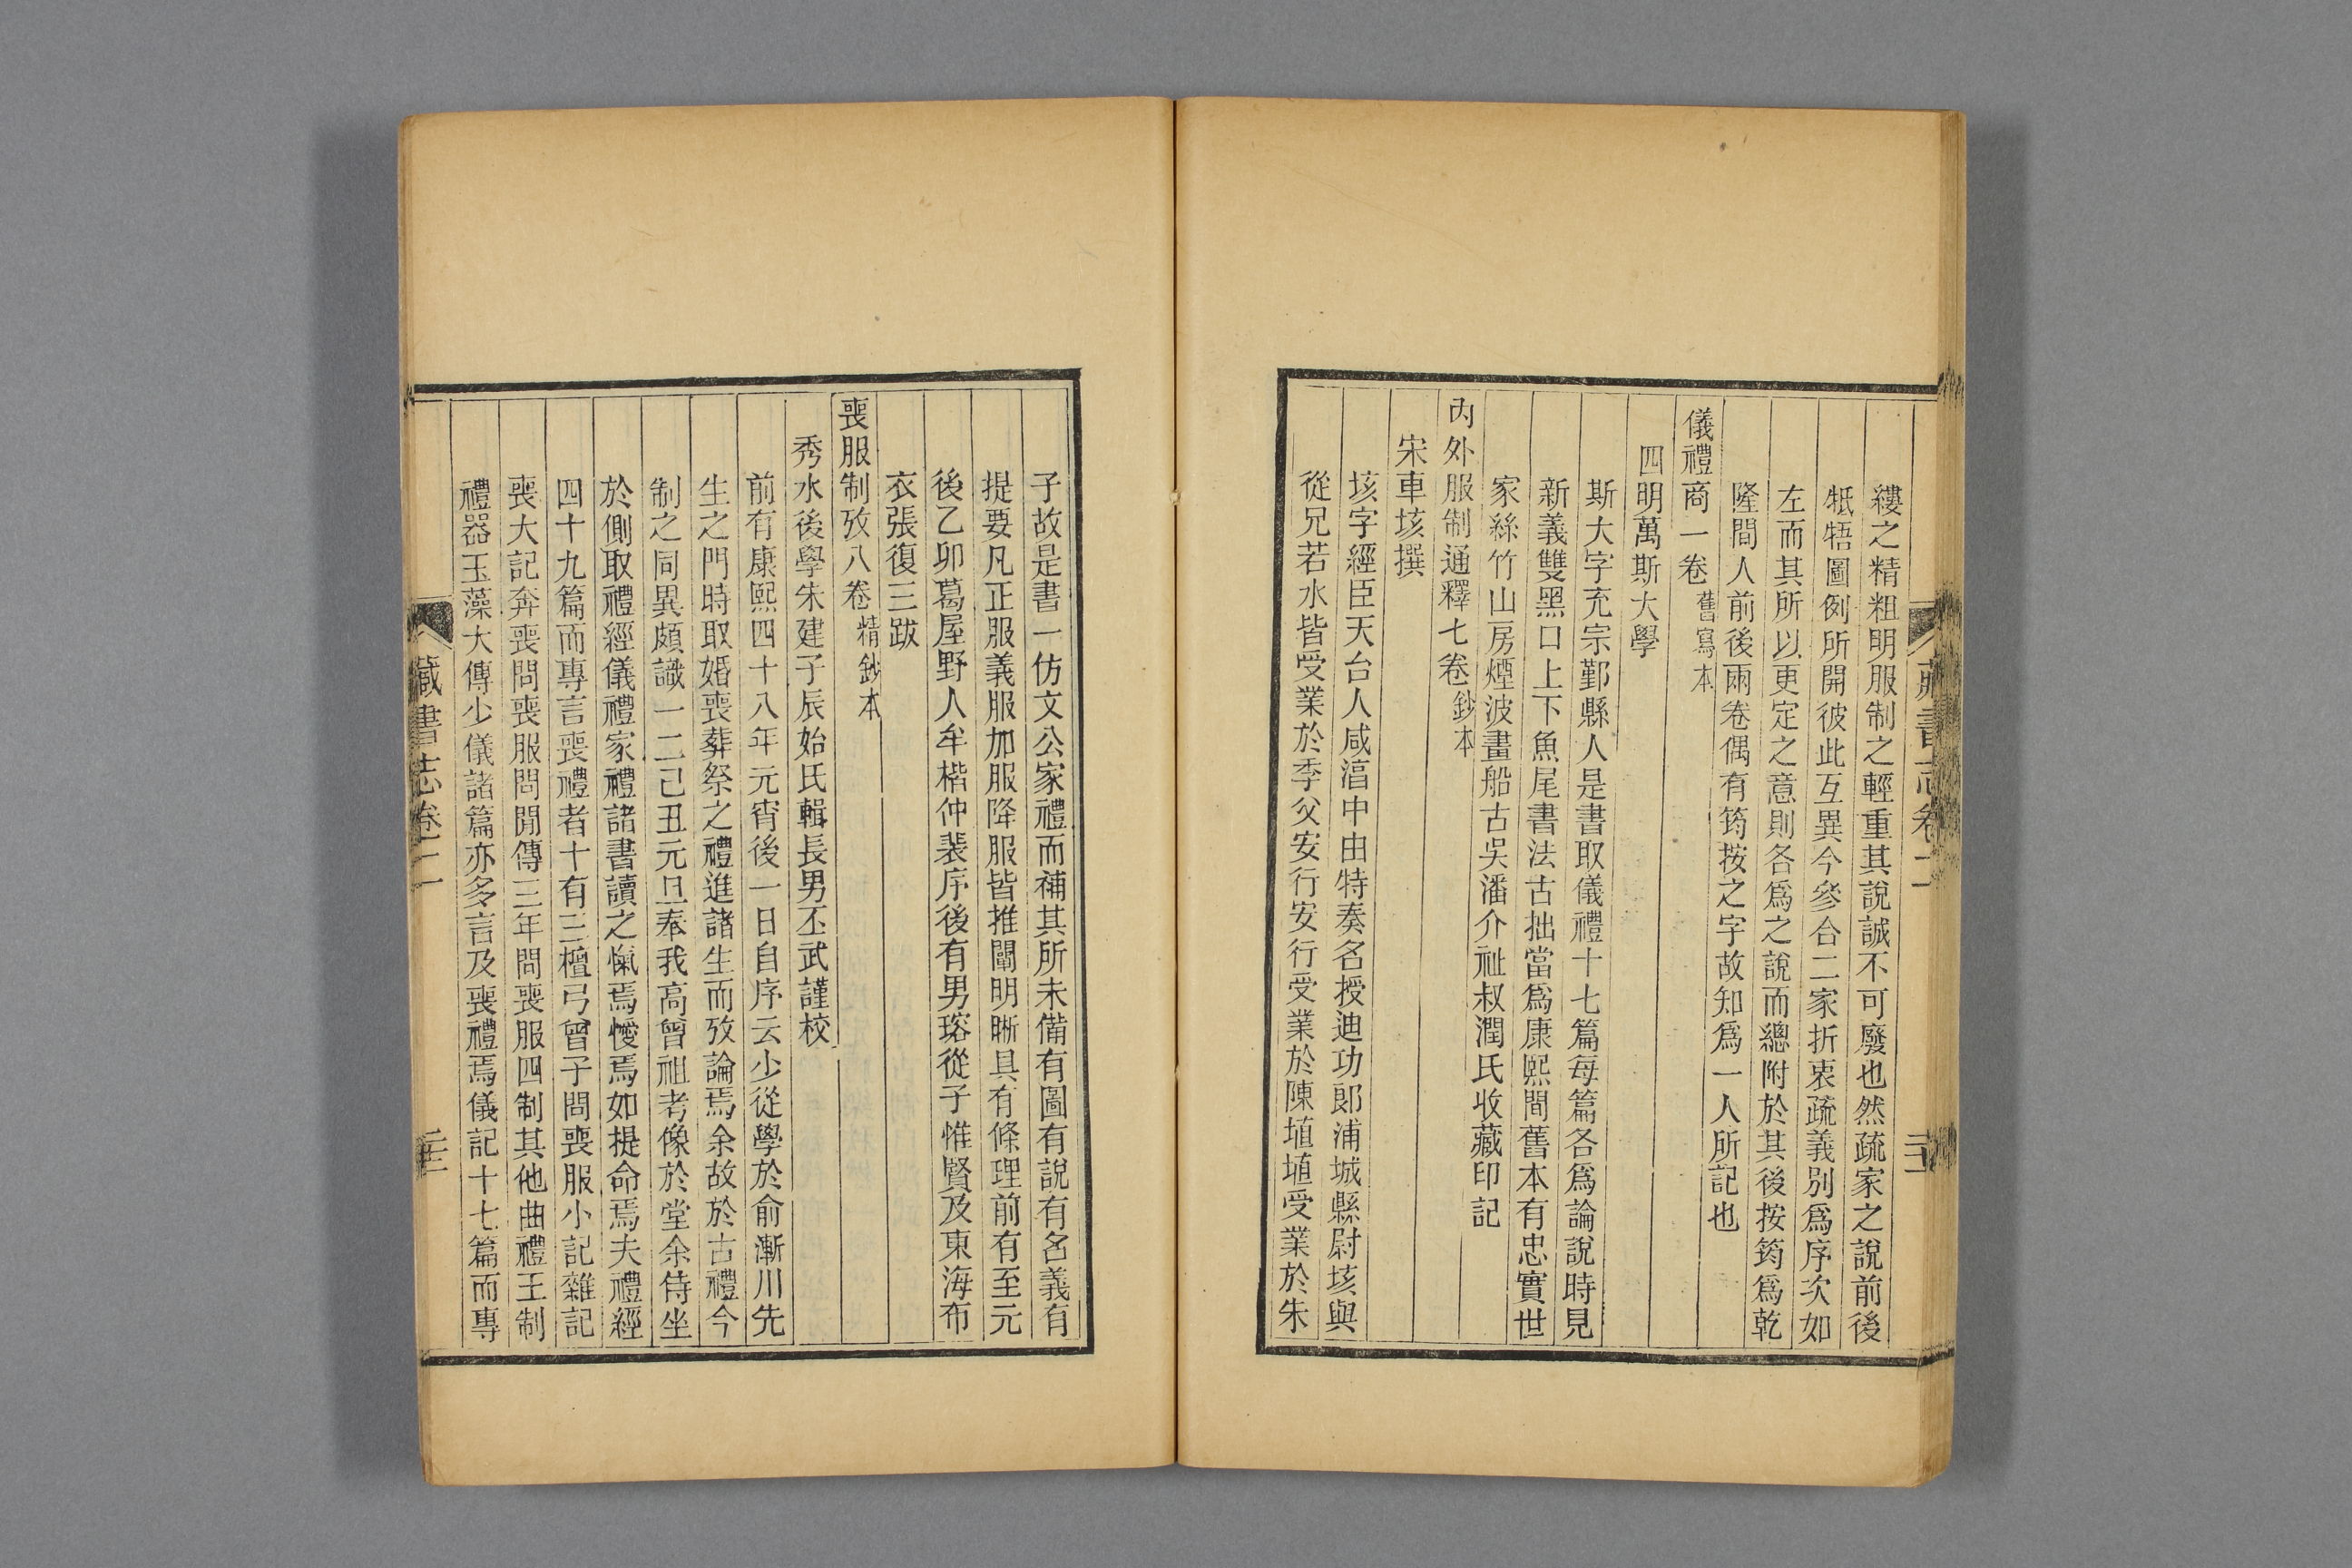 縷之精粗明服制之輕重其說誠不可廢也然疏家之說前後
牴牾圖例所開彼此互異今參合二家折衷疏義別爲序次如
左而其所以更定之意則各爲之說而總附於其後按筠爲乾
隆間人前後兩卷偶有筠按之字故知爲一人所記也
儀禮商一卷舊寫本
四明萬斯大學
斯大字充宗鄞縣人是書取儀禮十七篇每篇各爲論說時見
新義雙黑口上下魚尾書法古拙當爲康熙間舊本有忠實世
家絲竹山房煙波畫船古吳潘介祉叔潤氏收藏印記
內外服制通釋七卷鈔本
宋車垓撰
垓字經臣天台人咸淳中由特奏名授迪功郞浦城縣尉垓與
從兄若水皆受業於季父安行安行受業於陳埴埴受業於朱
子故是書一仿文公家禮而補其所未備有圖有說有名義有
提要凡正服義服加服降服皆推闡明晰具有條理前有至元
後乙卯葛屋野人牟楷仲裴序後有男瑢從子惟賢及東海布
衣張復三跋
喪服制攷八卷精鈔本
秀水後學朱建子辰始氏輯長男丕武謹校
前有康熙四十八年元宵後一日自序云少從學於俞漸川先
生之門時取婚喪葬祭之禮進諸生而攷論焉余故於古禮今
制之同異頗識一二己丑元旦奉我高曾祖考像於堂余侍坐
於側取禮經儀禮家禮諸書讀之愾焉懮焉如提命焉夫禮經
四十九篇而專言喪禮者十有三檀弓曾子問喪服小記雜記
喪大記奔喪問喪服問閒傳三年問喪服四制其他曲禮王制
禮器玉藻大傳少儀諸篇亦多言及喪禮焉儀記十七篇而專
藏書志卷二